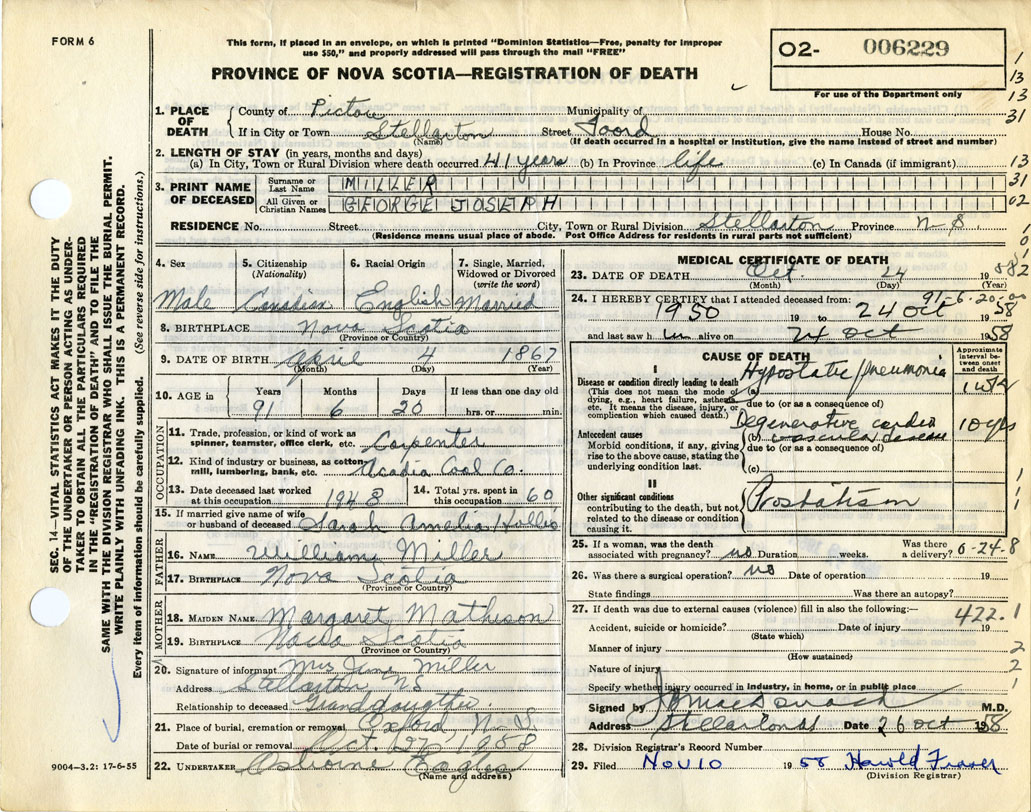 FORM 6
This form, if placed in an envelope, on which is printed "Dominion Statistics—Free, penalty for improper
use $50," and properly addressed will pass through the mail "FREE"
PROVINCE OF NOVA SCOTIA—REGISTRATION OF DEATH
O2- 006229
For use of the Department only
1
13
13
31
1. PLACE OF DEATH County of Pictou Municipality of
If in City or Town Stellarton Street Foord House No.
(Name) (If death occurred in a hospital or Institution, give the name instead of street and number)
2. LENGTH OF STAY (in years, months and days)
(a) In City, Town or Rural Division where death occurred 41 years (b) In Province life (c) In Canada (if immigrant) 13
3. PRINT NAME OF DECEASED Surname or Last Name MILLER 31
All Given or Christian Names GEORGE JOSEPH 02
RESIDENCE No. Street City, Town or Rural Division Stellarton Province N S
(Residence means usual place of abode. Post Office Address for residents in rural parts not sufficient)
SEC. 14—VITAL STATISTICS ACT MAKES IT THE DUTY
OF THE UNDERTAKER OR PERSON ACTING AS UNDER-
TAKER TO OBTAIN ALL THE PARTICULARS REQUIRED
IN THE "REGISTRATION OF DEATH" AND TO FILE THE
SAME WITH THE DIVISION REGISTRAR WHO SHALL ISSUE THE BURIAL PERMIT.
WRITE PLAINLY WITH UNFADING INK. THIS IS A PERMANENT RECORD.
Every item of information should be carefully supplied. (See reverse side for instructions.)
4. Sex 5. Citizenship (Nationality) 6. Racial Origin 7. Single, Married, Widowed or Divorced (write the word)
Male Canadian English Married
8. BIRTHPLACE Nova Scotia
(Province or Country)
9. DATE OF BIRTH April 4 1867
(Month) (Day) (Year)
10. AGE in Years Months Days If less than one day
91 6 20 hrs. or min.
OCCUPATION
11. Trade, profession, or kind of work as
spinner, teamster, office clerk, etc. Carpenter
12. Kind of industry or business, as cotton
mill, lumbering, bank, etc. Acadia Coal Co.
13. Date deceased last worked at this occupation 1948 14. Total yrs. spent in this occupation 60
15. If married give name of wife
or husband of deceased Sarah Amelia Hollis
FATHER
16. NAME William Miller
17. BIRTHPLACE Nova Scotia
(Province or Country)
MOTHER
18. MAIDEN NAME Margaret Matheson
19. BIRTHPLACE Nova Scotia
(Province or Country)
20. Signature of informant Mrs Miller
Address Stellarton NS
Relationship to deceased Granddaughter
21. Place of burial, cremation or removal Oxford, N.S.
Date of burial or removal Oct. 27, 1958
22. UNDERTAKER Osborne
(Name and address)
9004—3.2: 17-6-55
MEDICAL CERTIFICATE OF DEATH
23. DATE OF DEATH Oct. 24 1958
(Month) (Day) (Year)
91-6-20-
24. I HEREBY CERTIFY that I attended deceased from:
1950 19 to 24 Oct 1958
and last saw h im alive on 24 Oct 1958
CAUSE OF DEATH
Approximate interval between onset and death
I
Disease or condition directly leading to death Hypostatic pneumonia
(This does not mean the mode of (a) 1 wk
dying, e.g., heart failure, asthenia,
etc. It means the disease, injury, or due to (or as a consequence of)
complication which caused death.) Degenerative cardio 10 yrs
Antecedent causes (b) vascular disease
Morbid conditions, if any, giving due to (or as a consequence of)
rise to the above cause, stating the
underlying condition last. (c)
II
Other significant conditions Prostatism
contributing to the death, but not
related to the disease or condition
causing it.
25. If a woman, was the death Was there
associated with pregnancy? no Duration weeks. a delivery? 0-24-8
26. Was there a surgical operation? no Date of operation 19
State findings Was there an autopsy?
27. If death was due to external causes (violence) fill in also the following:— 422.1
Accident, suicide or homicide? Date of injury 19
(State which)
Manner of injury 2
(How sustained)
Nature of injury 2
Specify whether injury occurred in industry, in home, or in public place 1
Signed by M.D.
Address Stellarton NS Date 26 Oct 1958
28. Division Registrar's Record Number
29. Filed NOV 10 19 Harold Fraser
(Division Registrar)